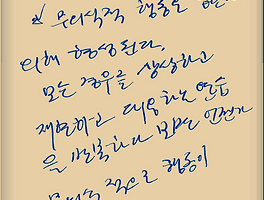 * 무의식적 행동은 연습
의해 형성된다.
모든 경우를 상상하고
재현하고 대응하는 연습
을 반복하다 보면 언젠가
무의식적으로 행동이